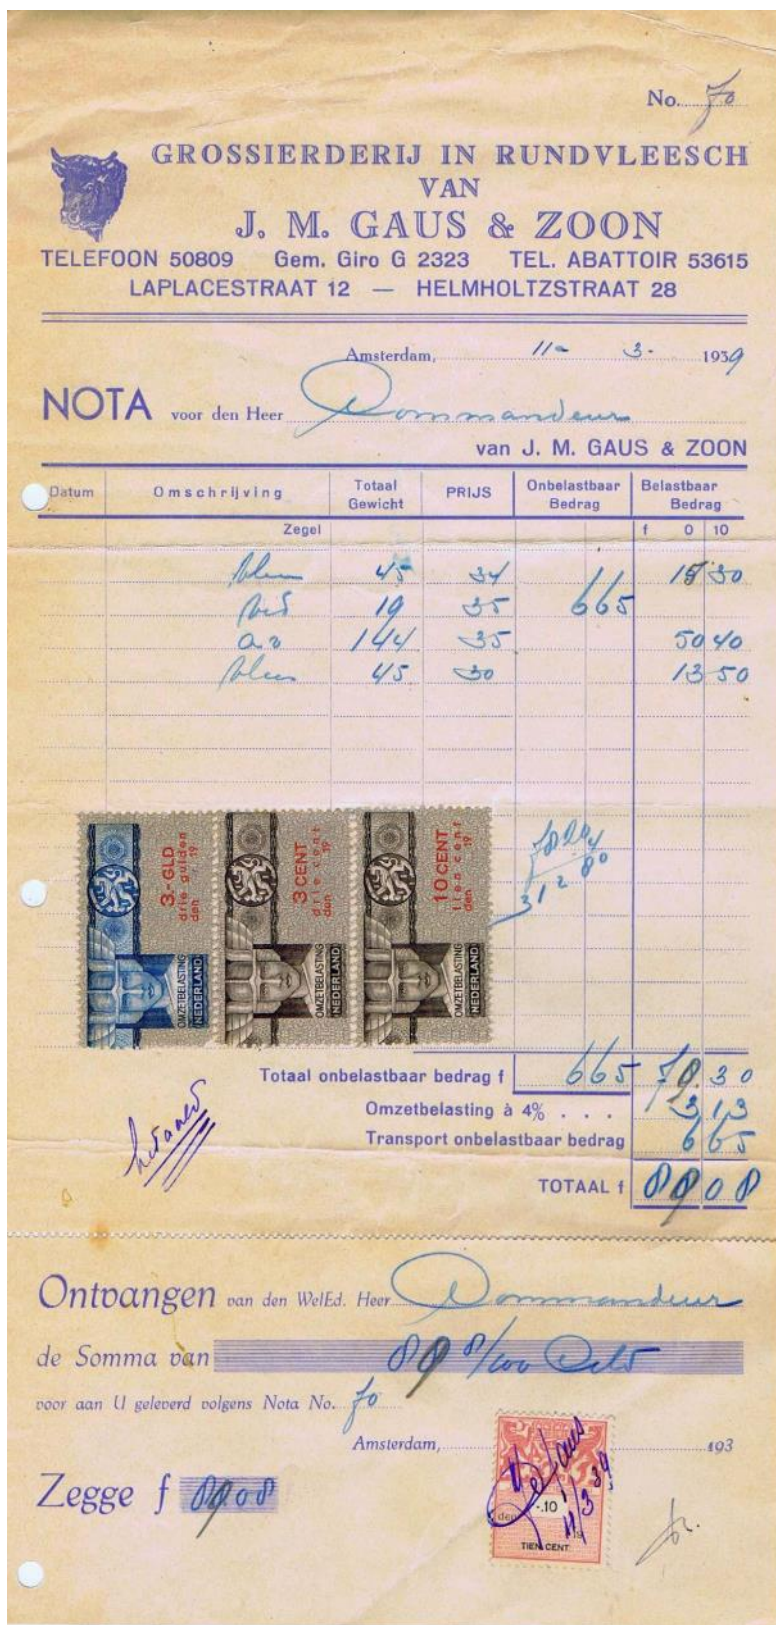 No. 70
GROSSIERDERIJ IN RUNDVLEESCH
VAN
J. M. GAUS & ZOON
TELEFOON 50809 Gem. Giro G 2323 TEL. ABATTOIR 53615
LAPLACESTRAAT 12 — HELMHOLTZSTRAAT 28
Amsterdam, 11- 3- 1939
NOTA voor den Heer Dommandeur
van J. M. GAUS & ZOON
Datum Omschrijving Totaal Gewicht PRIJS Onbelastbaar Bedrag Belastbaar Bedrag
Zegel f 0 10
45 34 30
19 35 665
144 35 50 40
45 30 13 50
3.-GLD drie gulden den 19
3 CENT drie cent den 19
10 CENT tien cent den 19
OMZETBELASTING NEDERLAND
OMZETBELASTING NEDERLAND
OMZETBELASTING NEDERLAND
312 80
Totaal onbelastbaar bedrag f 665 30
Omzetbelasting à 4% . . . 3 13
Transport onbelastbaar bedrag 6 65
TOTAAL f 08
Ontvangen van den WelEd. Heer Dommandeur
de Somma van 8/100
voor aan U geleverd volgens Nota No. 70
Amsterdam, 193
Zegge f 08
Gaus
11/3 39
den -.10 19
TIEN CENT